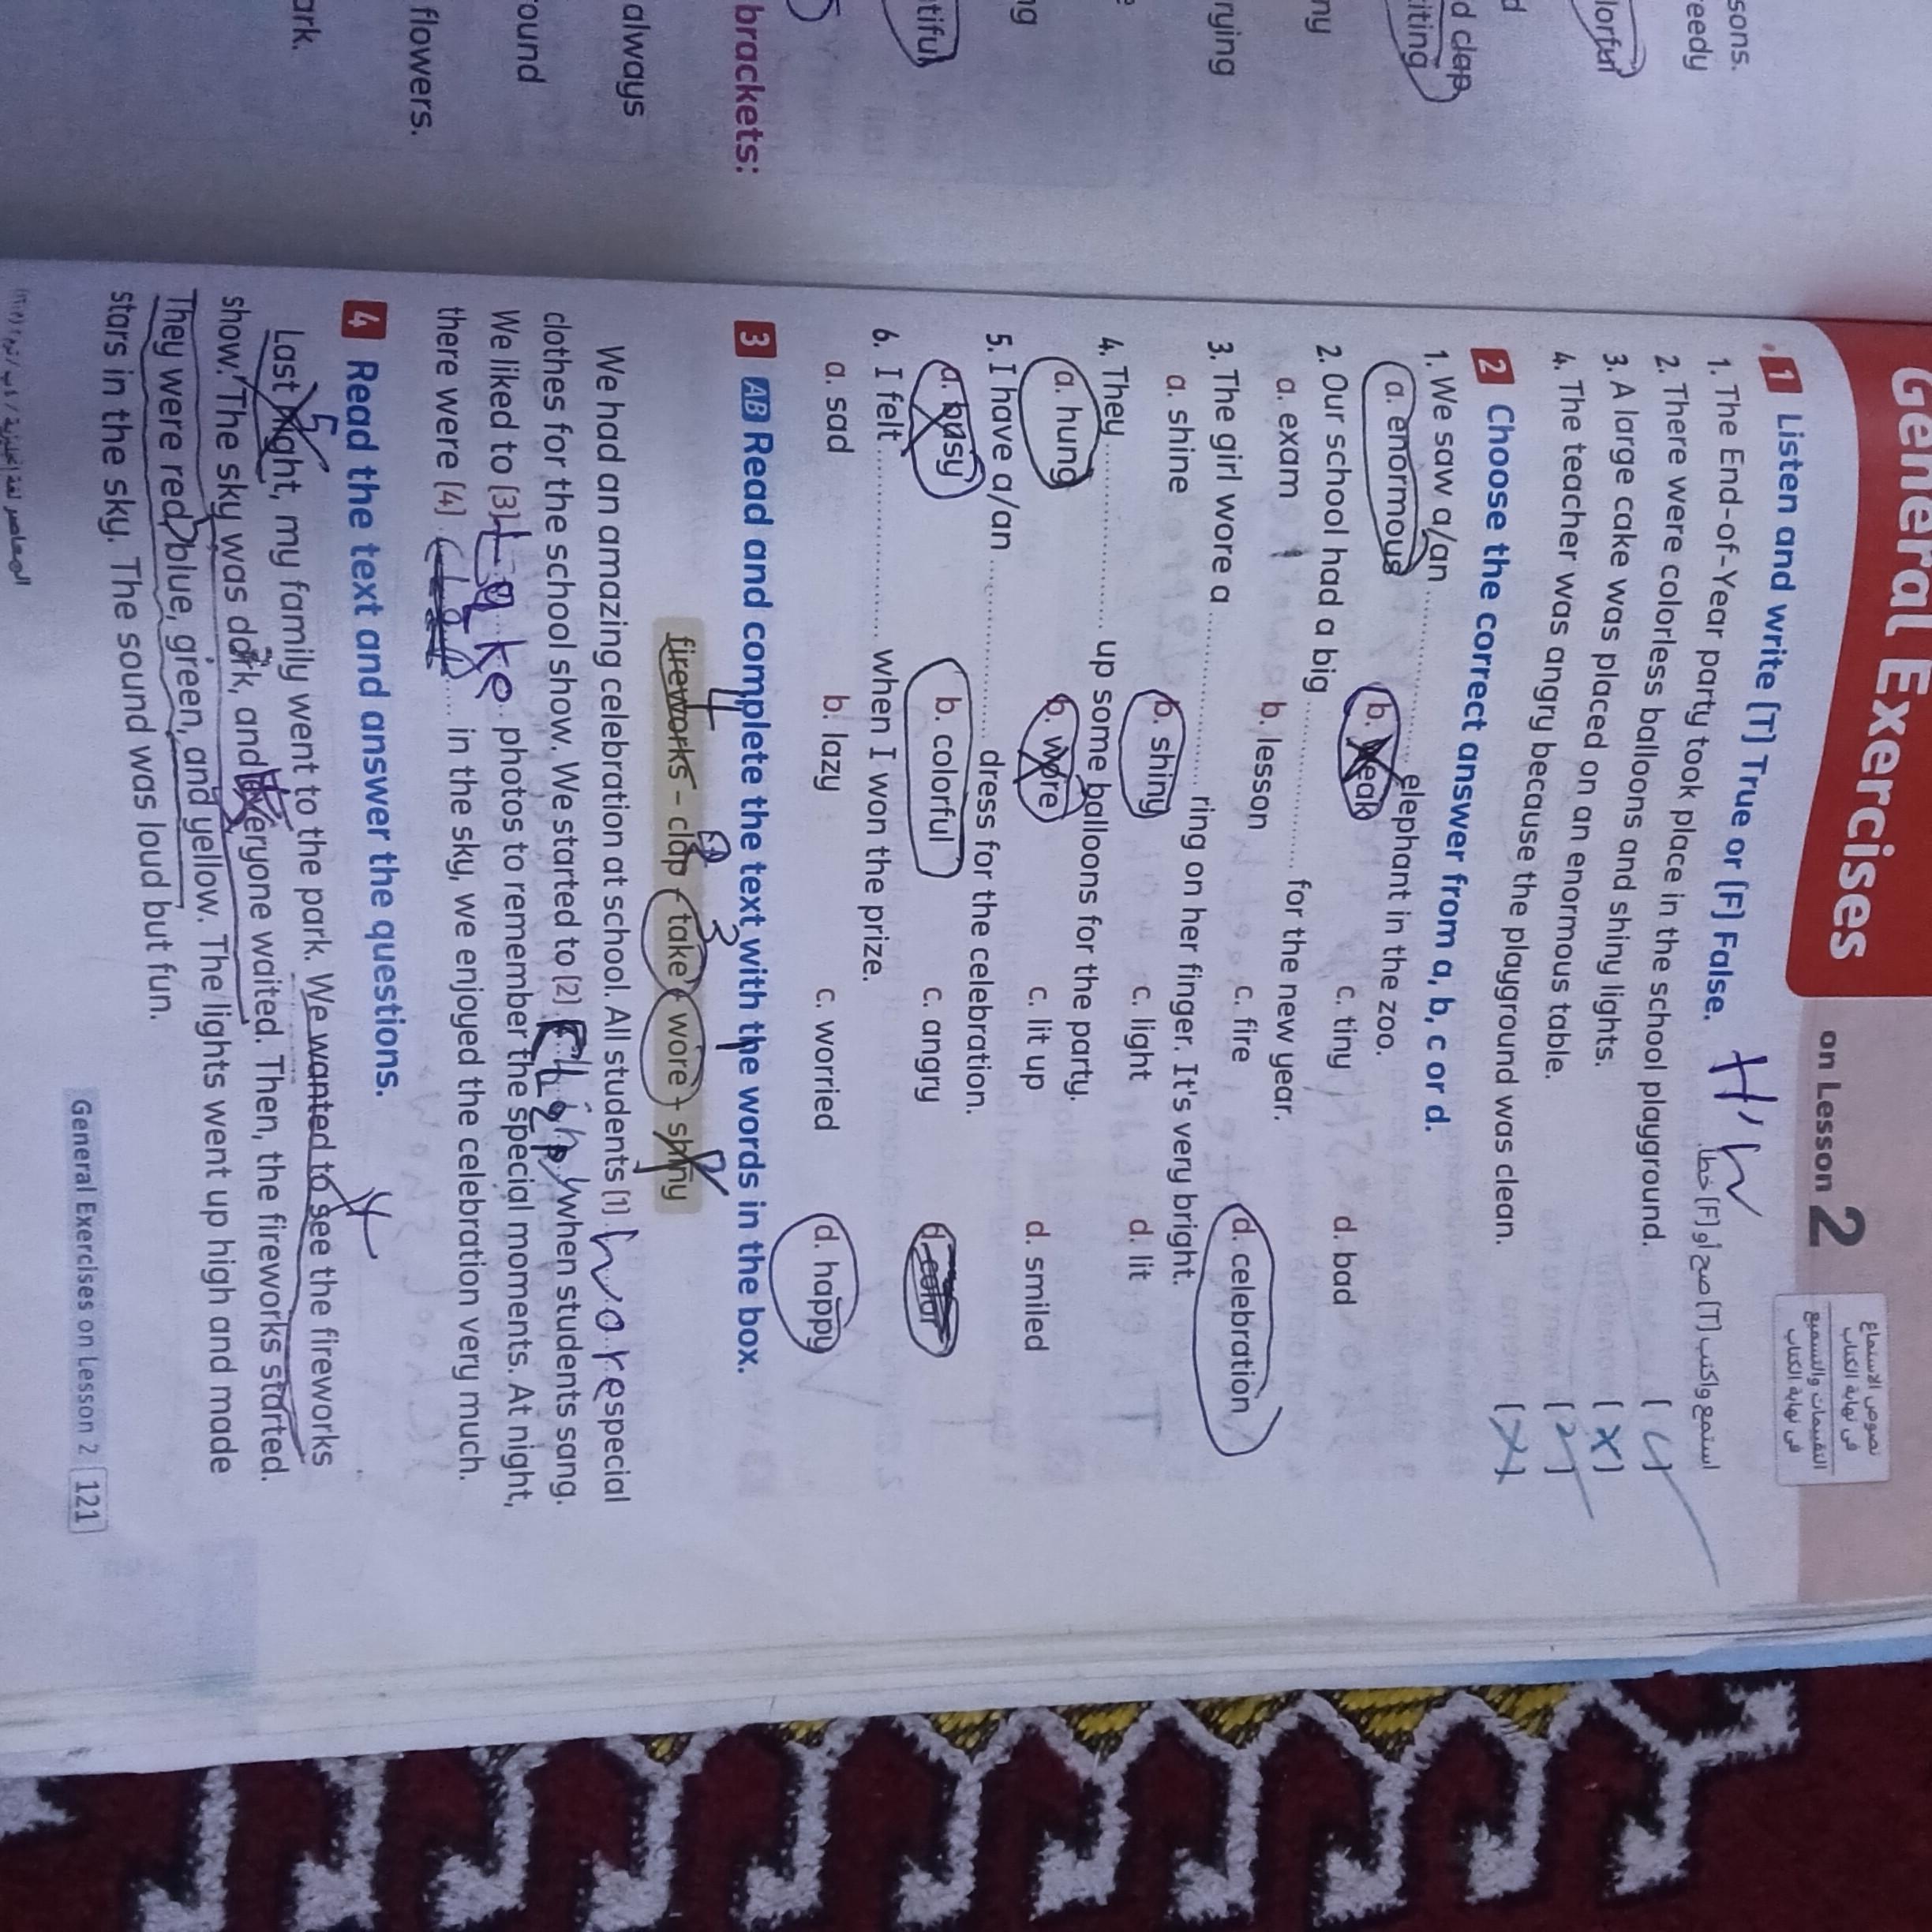 General Exercises on Lesson 2
نصوص الاستماع
فى نهاية الكتاب
التقييمات والتسميع
فى نهاية الكتاب
1 Listen and write [T] True or [F] False. H.W استمع واكتب [T] صح أو [F] خطأ.
1. The End-of-Year party took place in the school playground.
2. There were colorless balloons and shiny lights. [X]
3. A large cake was placed on an enormous table.
4. The teacher was angry because the playground was clean. [X]
2 Choose the correct answer from a, b, c or d.
1. We saw a/an .......... elephant in the zoo.
a. enormous b. weak c. tiny d. bad
2. Our school had a big .......... for the new year.
a. exam b. lesson c. fire d. celebration
3. The girl wore a .......... ring on her finger. It's very bright.
a. shine b. shiny c. light d. lit
4. They .......... up some balloons for the party.
a. hung b. wore c. lit up d. smiled
5. I have a/an .......... dress for the celebration.
a. busy b. colorful c. angry d. color
6. I felt .......... when I won the prize.
a. sad b. lazy c. worried d. happy
3 AB Read and complete the text with the words in the box.
4 3
fireworks - clap - take - wore - shiny
We had an amazing celebration at school. All students [1] wore special
clothes for the school show. We started to [2] when students sang.
We liked to [3] take photos to remember the special moments. At night,
there were [4] .......... in the sky, we enjoyed the celebration very much.
4 Read the text and answer the questions.
5 4
Last night, my family went to the park. We wanted to see the fireworks
show. The sky was dark, and everyone waited. Then, the fireworks started.
They were red, blue, green, and yellow. The lights went up high and made
stars in the sky. The sound was loud but fun.
General Exercises on Lesson 2 121
sons.
eedy
lorful
d
d clap
iting
ny
rying
e
ng
tiful
brackets:
always
round
flowers.
ark.